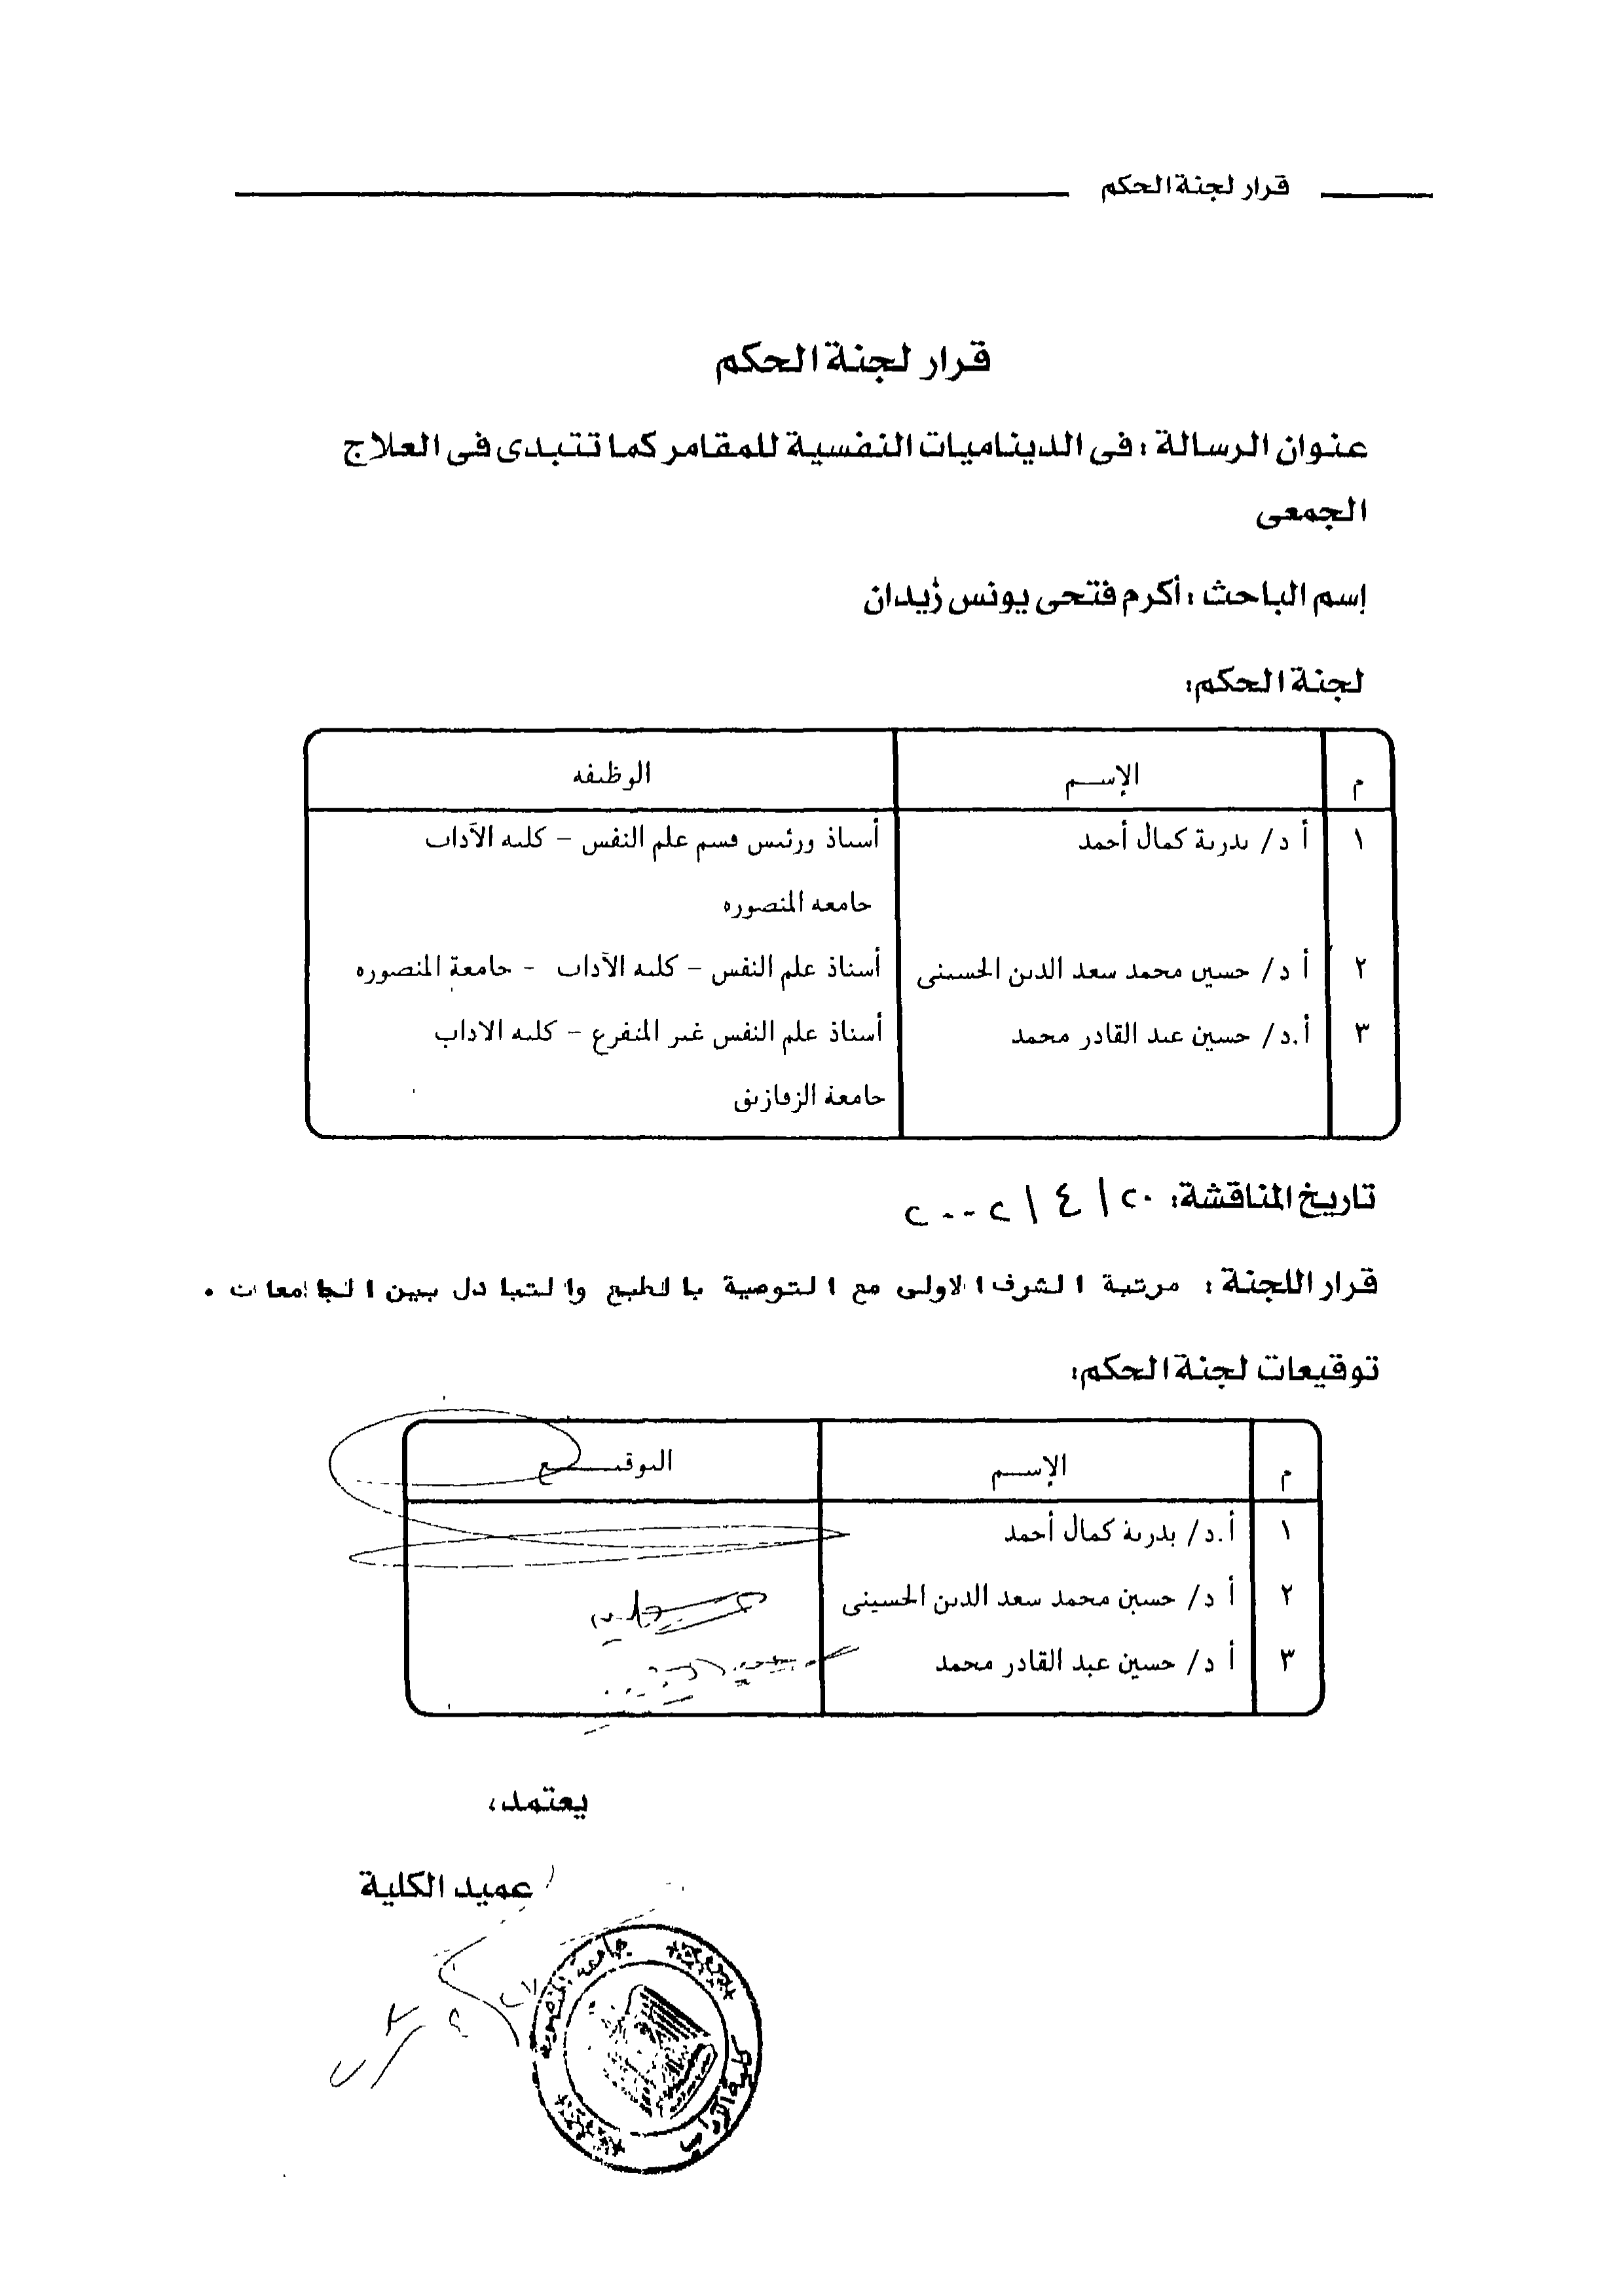 قرار لجنة الحكم
قرار لجنة الحكم
عنوان الرسالة : فى الديناميات النفسية للمقامر كما تتبدى فى العلاج
الجمعى
إسم الباحث : أكرم فتحى يونس زيدان
لجنة الحكم:
م الإســم الوظيفه
١ أ د/ بدرية كمال أحمد أستاذ ورئيس قسم علم النفس – كليه الآداب
جامعه المنصوره
٢ أ د/ حسين محمد سعد الدين الحسينى أستاذ علم النفس – كليه الآداب - جامعة المنصوره
٣ أ.د/ حسين عبد القادر محمد أستاذ علم النفس غير المتفرغ – كليه الاداب
جامعة الزقازيق
تاريخ المناقشة: ٢٠ / ٤ / ٢٠٠٢
قرار اللجنة : مرتبة الشرف الاولى مع التوصية بالطبع والتبادل بين الجامعات .
توقيعات لجنة الحكم:
م الإســم التوقيــــع
١ أ.د/ بدرية كمال أحمد
٢ أ د/ حسين محمد سعد الدين الحسينى
٣ أ د/ حسين عبد القادر محمد
يعتمد،
عميد الكلية
جامعة المنصورة
كلية الآداب